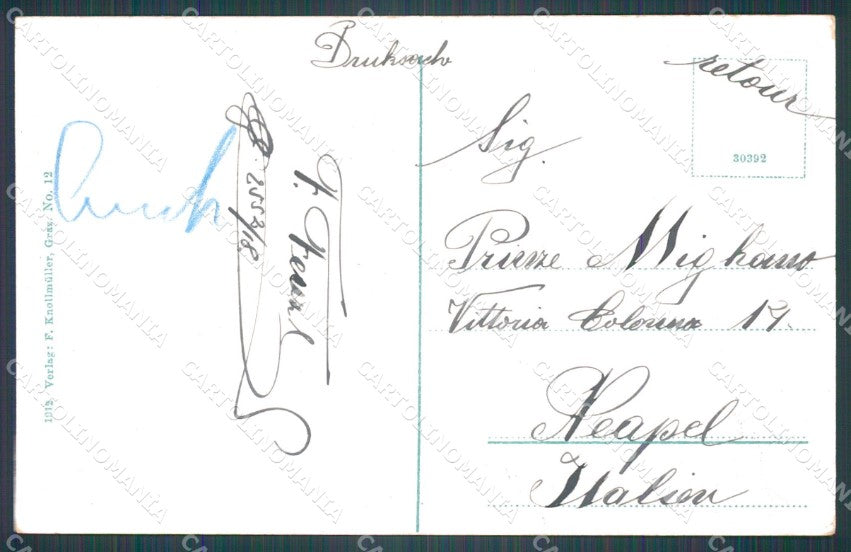 Druksach
retour
30392
Sig.
Prinze Mighano
Vittoria Colonna 14.
Neapel
Italien
1912. Verlag: F. Knollmüller, Graz. No. 12
CARTOLINOMANIA